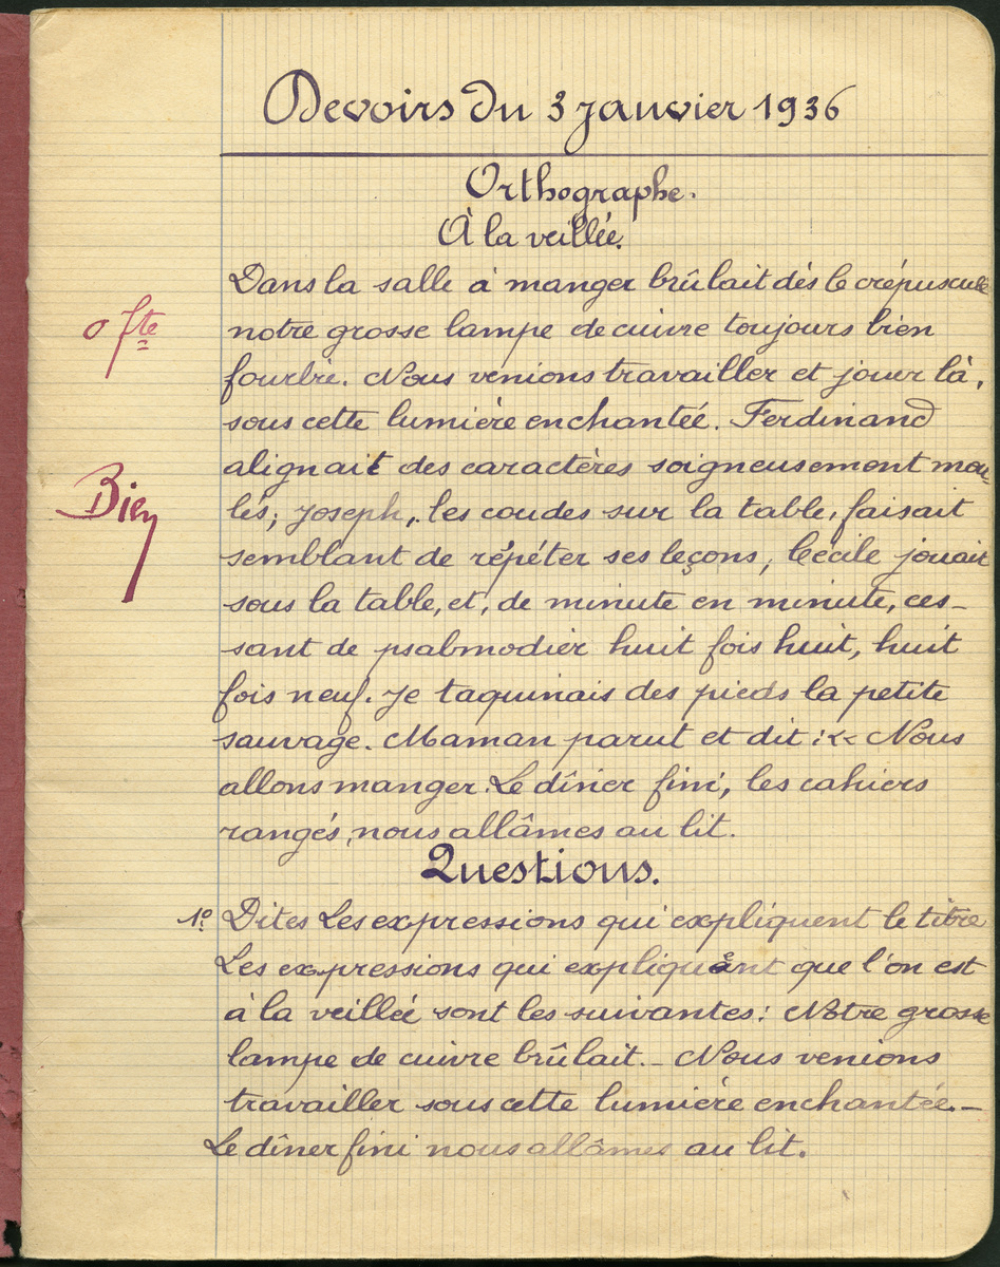 Devoirs du 3 janvier 1936
Orthographe.
À la veillée.
Dans la salle à manger brûlait dès le crépuscule
0 fte
notre grosse lampe de cuivre toujours bien
fourbie. Nous venions travailler et jouer là,
sous cette lumière enchantée. Ferdinand
alignait des caractères soigneusement mou-
Bien
lés; Joseph, les coudes sur la table, faisait
semblant de répéter ses leçons, Cécile jouait
sous la table, et, de minute en minute, ces-
sant de psalmodier huit fois huit, huit
fois neuf. Je taquinais des pieds la petite
sauvage. Maman parut et dit : << Nous
allons manger. Le dîner fini, les cahiers
rangés, nous allâmes au lit.
Questions.
1º Dites Les expressions qui expliquent le titre
Les expressions qui expliquent que l'on est
à la veillée sont les suivantes : Notre grosse
lampe de cuivre brûlait. - Nous venions
travailler sous cette lumière enchantée. -
Le dîner fini nous allâmes au lit.